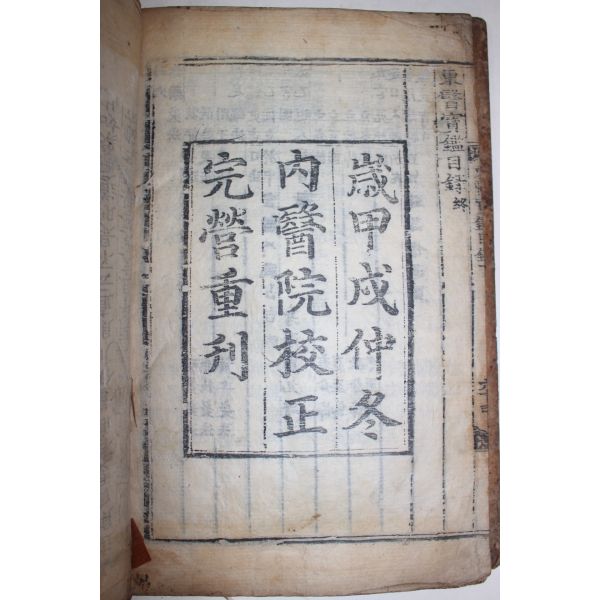 東醫寶鑑目錄 終
歲甲戌仲冬
内醫院校正
完營重刋